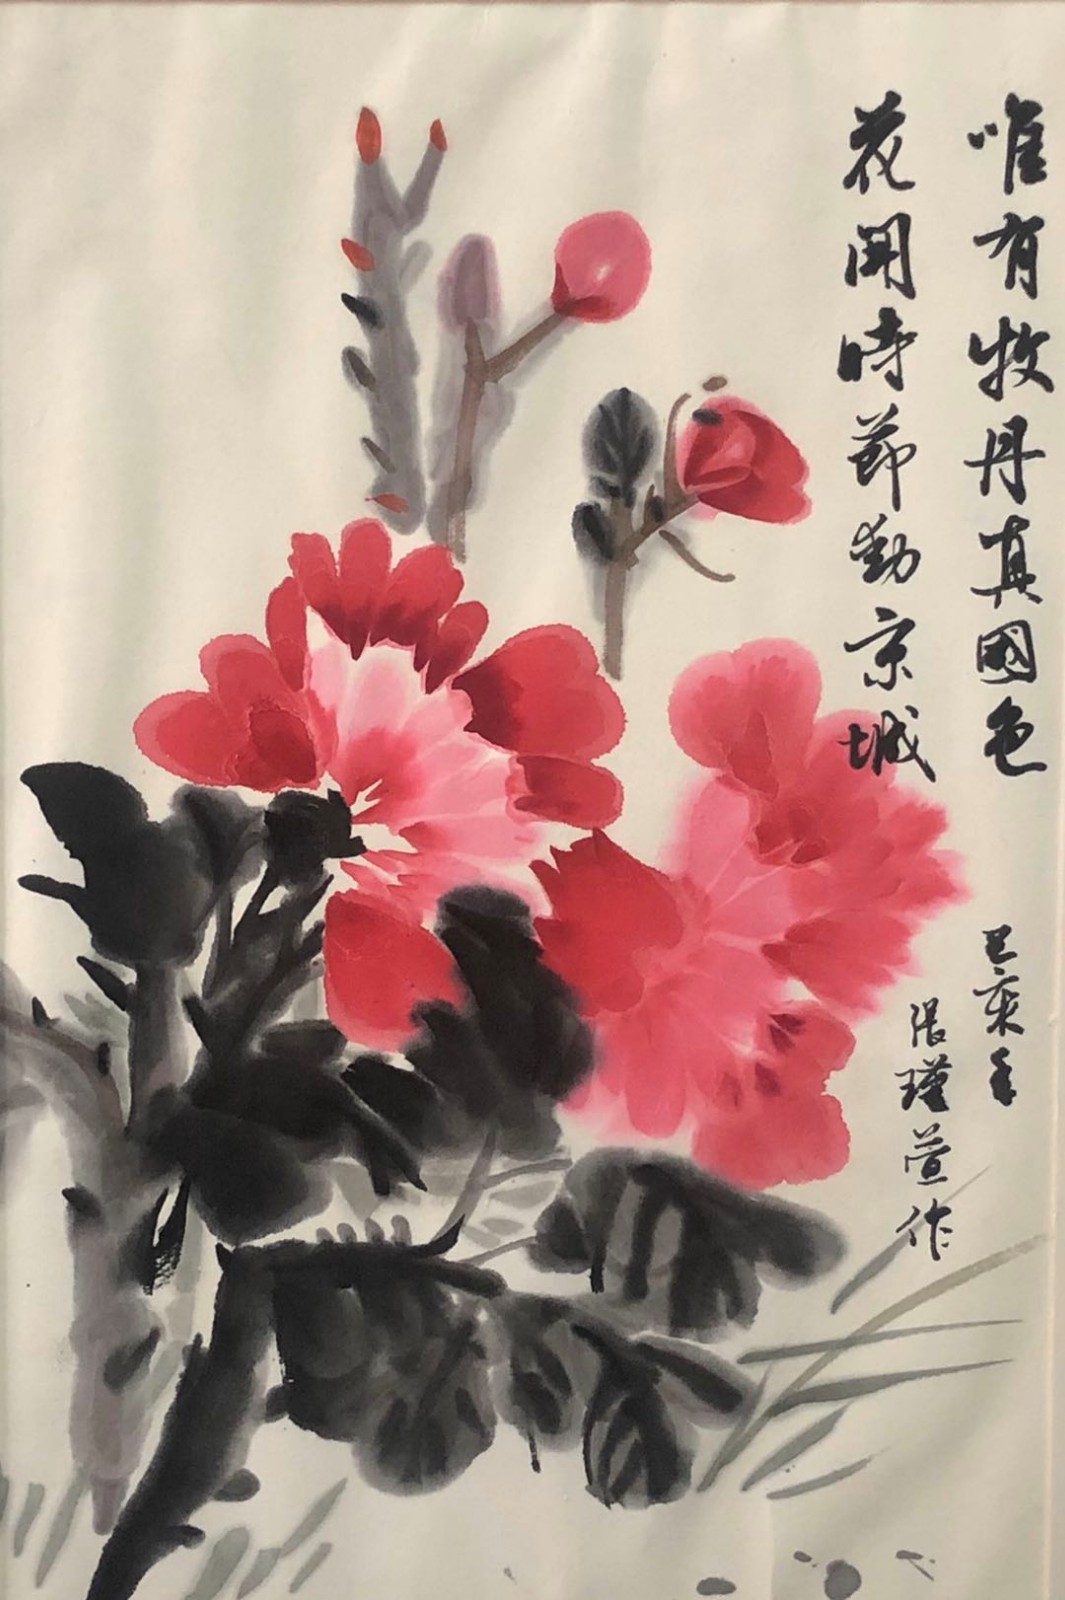 唯有牧丹真國色
花開時節動京城
己亥年
張瑾萱作